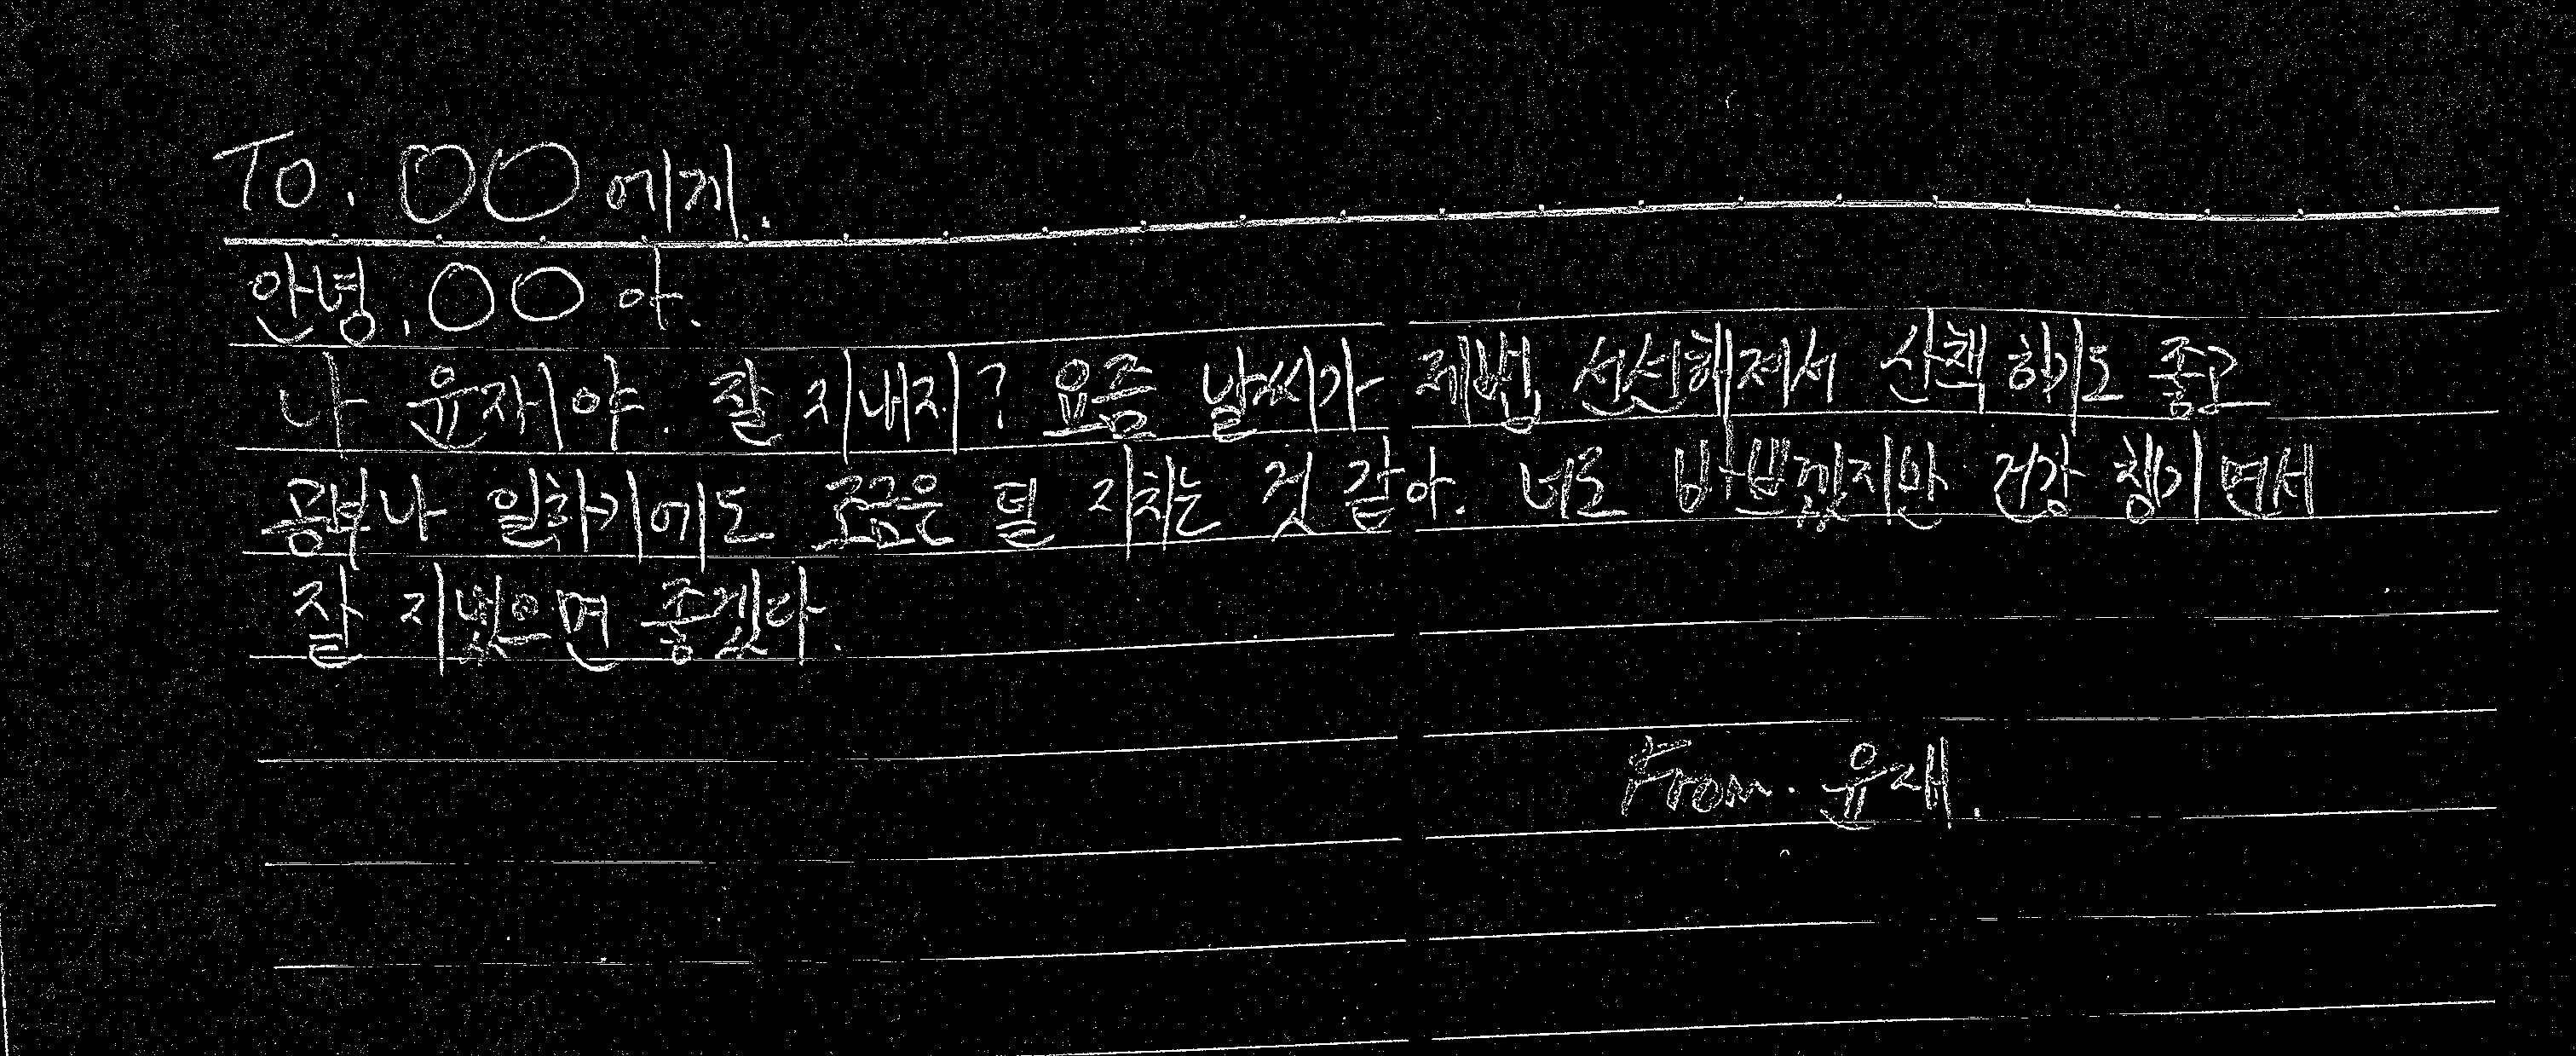 To. OO에게.
안녕, OO아.
나 유재야. 잘 지내지? 요즘 날씨가 제법 선선해져서 산책하기도 좋고
공부나 일하기에도 조금은 덜 지치는 것 같아. 너도 바쁘겠지만 건강 챙기면서
잘 지냈으면 좋겠다.
From. 유재.